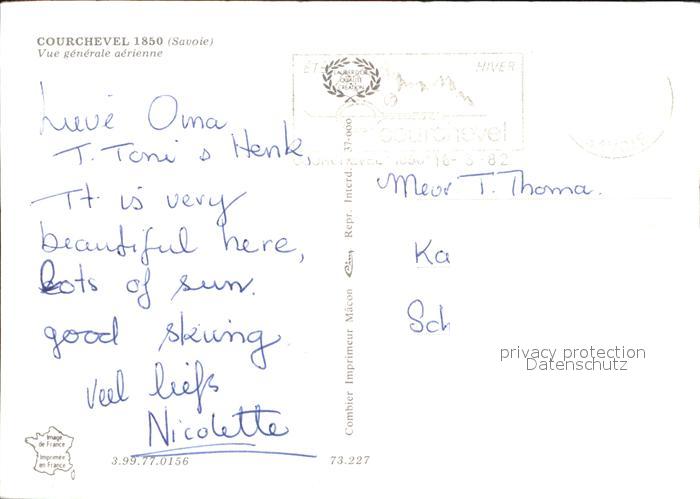 COURCHEVEL 1850 (Savoie)
Vue générale aérienne
Lieve Oma
T. Toni & Henk,
It is very
beautiful here,
Lots of sun.
good skiing
veel liefs
Nicolette
Image
de France
Imprimée
en France
3.99.77.0156
73.227
Combier Imprimeur Mâcon
Repr. Interd. 37-000
ÉTÉ
HIVER
courchevel
COURCHEVEL 1850 16-3-82
SAVOIE
Mevr T. Thoma.
Ka
Sch
privacy protection
Datenschutz